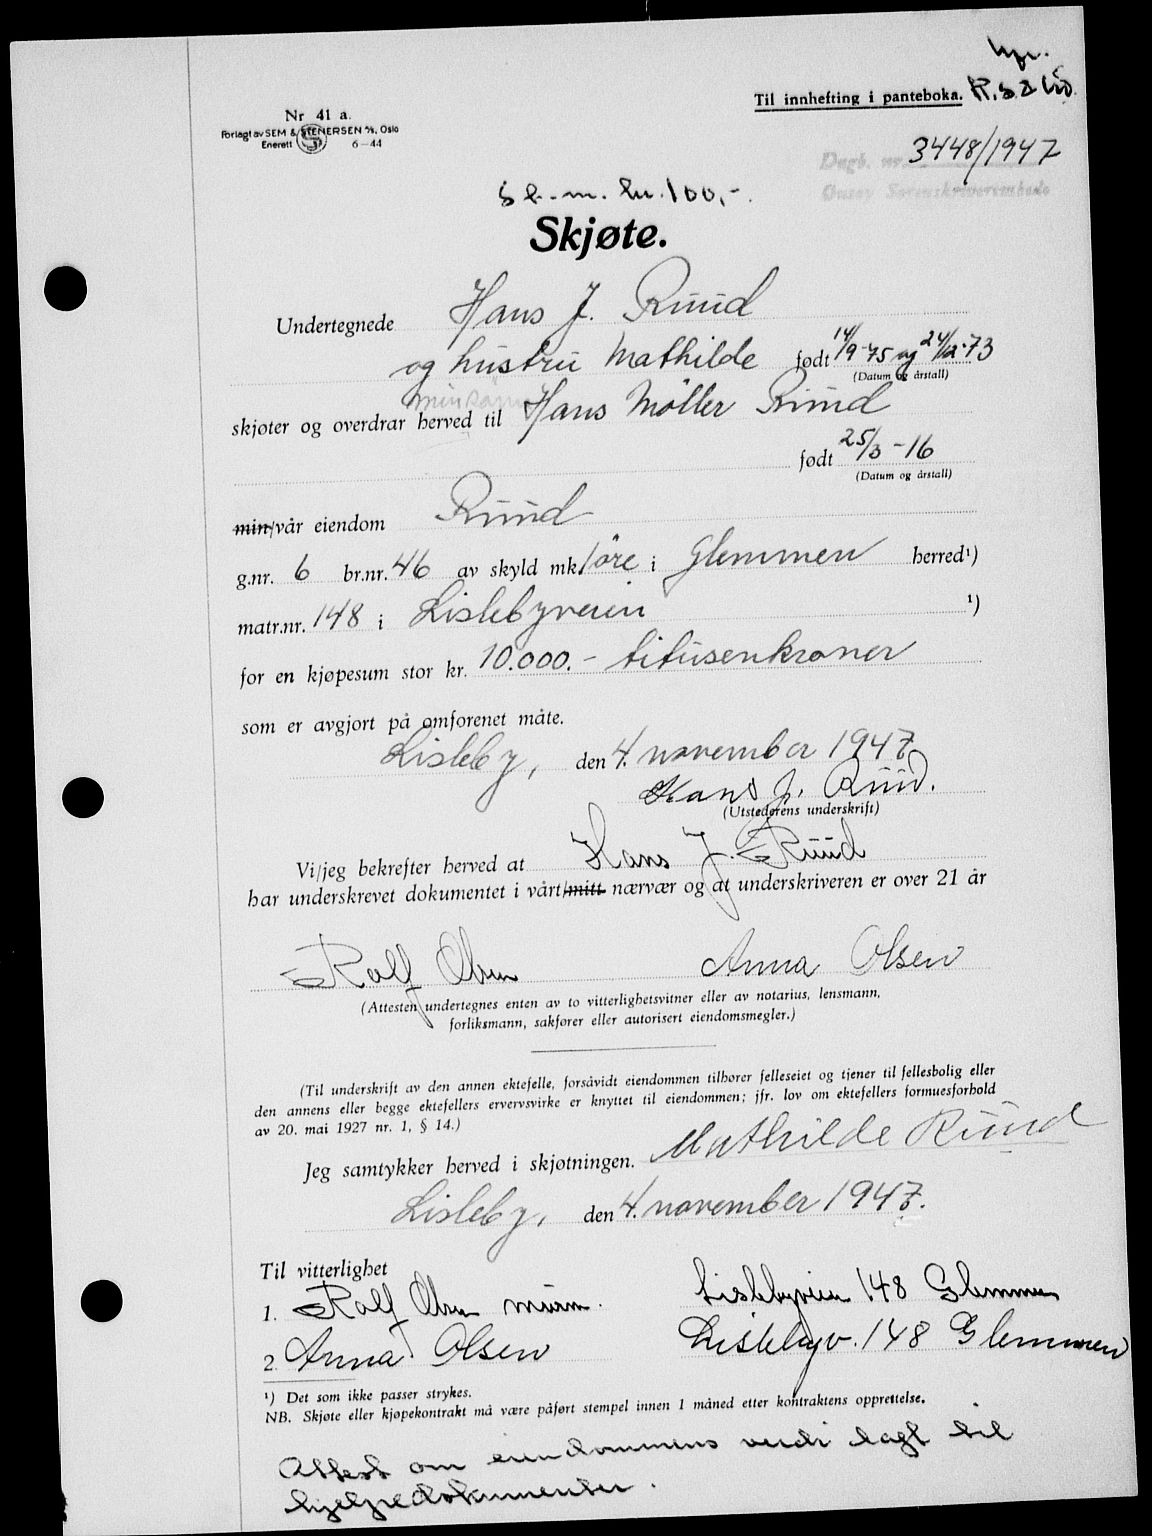 Til innhefting i panteboka.
Nr 41 a.
Forlagt av SEM & STENERSEN A/S, Oslo
Enerett 6-44
Dagb. nr. 3448/1947
Onsøy Sorenskriverembede
St.m. kr. 100,-
Skjøte.
Undertegnede Hans J. Ruud
og hustru Mathilde født 14/9-75 og 24/2-73
(Datum og årstall)
min sønn
skjøter og overdrar herved til Hans Møller Ruud
født 25/3-16
(Datum og årstall)
min/vår eiendom Ruud
g.nr. 6 br.nr. 46 av skyld mk. 1 øre i Glemmen herred¹)
matr.nr. 148 i Lislebyveien ¹)
for en kjøpesum stor kr. 10.000.- titusenkroner
som er avgjort på omforenet måte.
Lisleby, den 4. november 1947
Hans J. Ruud.
(Utstederens underskrift)
Vi/jeg bekrefter herved at Hans J. Ruud
har underskrevet dokumentet i vårt/mitt nærvær og at underskriveren er over 21 år
Rolf Olsen Anna Olsen
(Attesten undertegnes enten av to vitterlighetsvitner eller av notarius, lensmann,
forliksmann, sakfører eller autorisert eiendomsmegler.)
(Til underskrift av den annen ektefelle, forsåvidt eiendommen tilhører felleseiet og tjener til fellesbolig eller
den annens eller begge ektefellers ervervsvirke er knyttet til eiendommen; jfr. lov om ektefellers formuesforhold
av 20. mai 1927 nr. 1, § 14.)
Jeg samtykker herved i skjøtningen. Mathilde Ruud
Lisleby, den 4. november 1947.
Til vitterlighet
1. Rolf Olsen murer. Lislebyveien 148 Glemmen
2. Anna Olsen Lislebyv. 148 Glemmen
¹) Det som ikke passer strykes.
NB. Skjøte eller kjøpekontrakt må være påført stempel innen 1 måned etter kontraktens opprettelse.
Attest om eiendommens verdi lagt til
hjelpedokumenter.